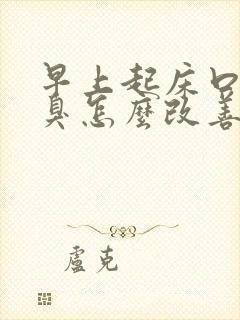 早上起床口
臭怎麼改善
盧克